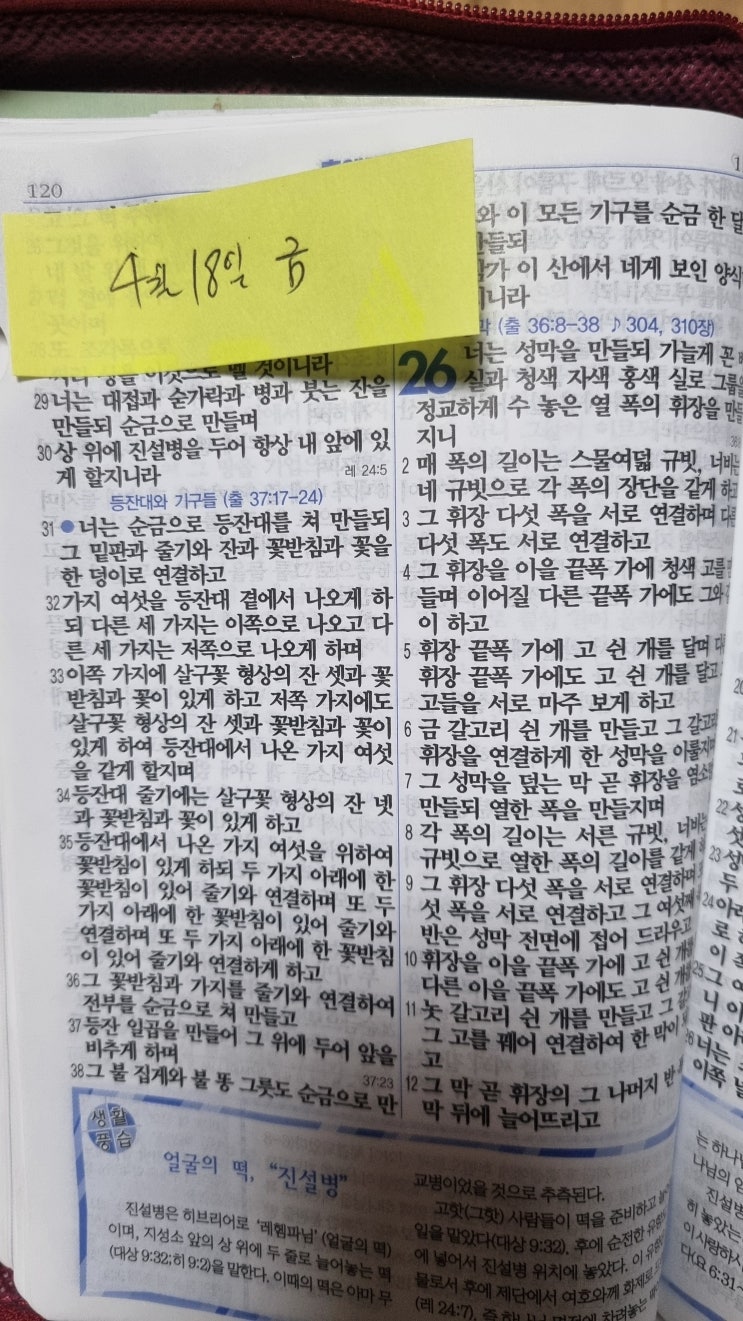 120
4월 18일 금
29 너는 대접과 숟가락과 병과 붓는 잔을
만들되 순금으로 만들며
30 상 위에 진설병을 두어 항상 내 앞에 있
게 할지니라 레 24:5
등잔대와 기구들 (출 37:17-24)
31 ●너는 순금으로 등잔대를 쳐 만들되
그 밑판과 줄기와 잔과 꽃받침과 꽃을
한 덩이로 연결하고
32 가지 여섯을 등잔대 곁에서 나오게 하
되 다른 세 가지는 이쪽으로 나오고 다
른 세 가지는 저쪽으로 나오게 하며
33 이쪽 가지에 살구꽃 형상의 잔 셋과 꽃
받침과 꽃이 있게 하고 저쪽 가지에도
살구꽃 형상의 잔 셋과 꽃받침과 꽃이
있게 하여 등잔대에서 나온 가지 여섯
을 같게 할지며
34 등잔대 줄기에는 살구꽃 형상의 잔 넷
과 꽃받침과 꽃이 있게 하고
35 등잔대에서 나온 가지 여섯을 위하여
꽃받침이 있게 하되 두 가지 아래에 한
꽃받침이 있어 줄기와 연결하며 또 두
가지 아래에 한 꽃받침이 있어 줄기와
연결하며 또 두 가지 아래에 한 꽃받침
이 있어 줄기와 연결하게 하고
36 그 꽃받침과 가지를 줄기와 연결하여
전부를 순금으로 쳐 만들고
37 등잔 일곱을 만들어 그 위에 두어 앞을
비추게 하며 37:23
38 그 불 집게와 불 똥 그릇도 순금으로 만
와 이 모든 기구를 순금 한 달
만들되
이 산에서 네게 보인 양식
니라
막 (출 36:8-38 ♪304, 310장)
26 너는 성막을 만들되 가늘게 꼰
실과 청색 자색 홍색 실로 그룹을
정교하게 수 놓은 열 폭의 휘장을 만들
지니
2 매 폭의 길이는 스물여덟 규빗, 너비는
네 규빗으로 각 폭의 장단을 같게 하고
3 그 휘장 다섯 폭을 서로 연결하며 다른
다섯 폭도 서로 연결하고
4 그 휘장을 이을 끝폭 가에 청색 고를
들며 이어질 다른 끝폭 가에도 그와
이 하고
5 휘장 끝폭 가에 고 쉰 개를 달며
휘장 끝폭 가에도 고 쉰 개를 달고
고들을 서로 마주 보게 하고
6 금 갈고리 쉰 개를 만들고 그 갈고리
휘장을 연결하게 한 성막을 이룰지며
7 그 성막을 덮는 막 곧 휘장을 염소
만들되 열한 폭을 만들지며
8 각 폭의 길이는 서른 규빗, 너비는
규빗으로 열한 폭의 길이를 같게
9 그 휘장 다섯 폭을 서로 연결하며
섯 폭을 서로 연결하고 그 여섯째
반은 성막 전면에 접어 드리우고
10 휘장을 이을 끝폭 가에 고 쉰 개를
다른 이을 끝폭 가에도 고 쉰 개를
11 놋 갈고리 쉰 개를 만들고 그
그 고를 꿰어 연결하여 한 막이
고
12 그 막 곧 휘장의 그 나머지 반
막 뒤에 늘어뜨리고
생활
풍습
얼굴의 떡, “진설병”
진설병은 히브리어로 ‘레헴파님’(얼굴의 떡)
이며, 지성소 앞의 상 위에 두 줄로 늘어놓는 떡
(대상 9:32;히 9:2)을 말한다. 이때의 떡은 아마 무
교병이었을 것으로 추측된다.
고핫(그핫) 사람들이 떡을 준비하고
일을 맡았다(대상 9:32). 후에 순전한
에 넣어서 진설병 위치에 놓았다. 이
물로서 후에 제단에서 여호와께 화제로
(레 24:7).